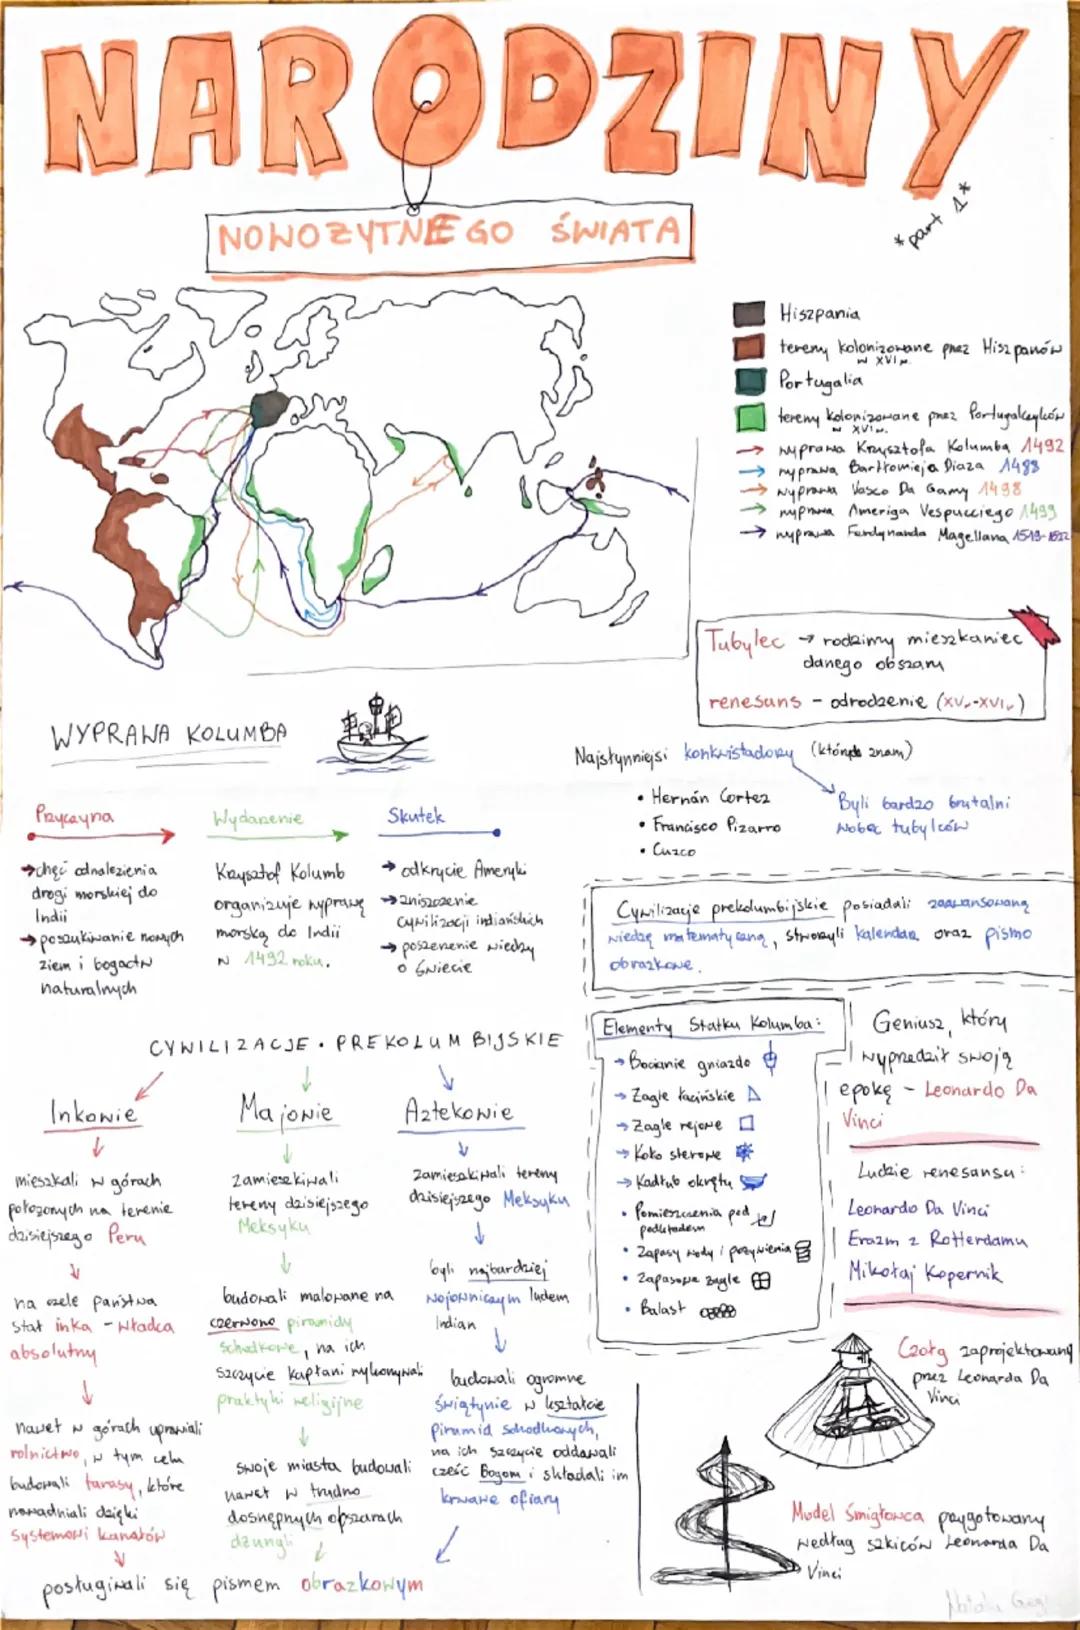 NARODZINY
NOWOZYTNEGO ŚWIATA
*part 1*
Hiszpania
tereny kolonizowane przez Hiszpanów
w XVI w.
Portugalia
tereny kolonizowane przez Portugalczyków
w XVI w.
wyprawa Krzysztofa Kolumba 1492
wyprawa Bartłomieja Diaza 1488
wyprawa Vasco Da Gamy 1498
wyprawa Ameriga Vespucciego 1499
wyprawa Ferdynanda Magellana 1519-1522
Tubylec → rodzimy mieszkaniec
danego obszaru
renesans - odrodzenie (XV-XVI)
WYPRAWA KOLUMBA
Przyczyna
→ chęć odnalezienia
drogi morskiej do
Indii
→ poszukiwanie nowych
ziem i bogactw
naturalnych
Wydarzenie
Krzysztof Kolumb
organizuje wyprawę
morską do Indii
w 1492 roku.
Skutek
→ odkrycie Ameryki
→ zniszczenie
cywilizacji indiańskich
→ poszerzenie wiedzy
o świecie
Najsłynniejsi konkwistadorzy (których znam)
• Hernán Cortez
• Francisco Pizarro
• Cuzco
Byli bardzo brutalni
wobec tubylców
Cywilizacje prekolumbijskie posiadali zaawansowaną
wiedzę matematyczną, stworzyli kalendarz oraz pismo
obrazkowe.
CYWILIZACJE • PREKOLUMBIJSKIE
Inkowie
mieszkali w górach
położonych na terenie
dzisiejszego Peru
na czele państwa
stał inka - władca
absolutny
nawet w górach uprawiali
rolnictwo, w tym celu
budowali tarasy, które
nawadniali dzięki
systemowi kanałów
Majowie
zamieszkiwali
tereny dzisiejszego
Meksyku
budowali malowane na
czerwono piramidy
schodkowe, na ich
szczycie kapłani wykonywali
praktyki religijne
swoje miasta budowali
nawet w trudno
dostępnych obszarach
dżungli
Aztekowie
zamieszkiwali tereny
dzisiejszego Meksyku
byli najbardziej
wojowniczym ludem
Indian
budowali ogromne
świątynie w kształcie
piramid schodkowych,
na ich szczycie oddawali
cześć Bogom i składali im
krwawe ofiary
posługiwali się pismem obrazkowym
Elementy Statku Kolumba:
→ Bocianie gniazdo
→ Żagle łacińskie
→ Żagle rejowe
→ Koło sterowe
→ Kadłub okrętu
• Pomieszczenia pod
pokładem
• Zapasy wody i pożywienia
• Zapasowe żagle
• Balast
Geniusz, który
wyprzedził swoją
epokę - Leonardo Da
Vinci
Ludzie renesansu:
Leonardo Da Vinci
Erazm z Rotterdamu
Mikołaj Kopernik
Czołg zaprojektowany
przez Leonarda Da
Vinci
Model śmigłowca przygotowany
według szkiców Leonarda Da
Vinci